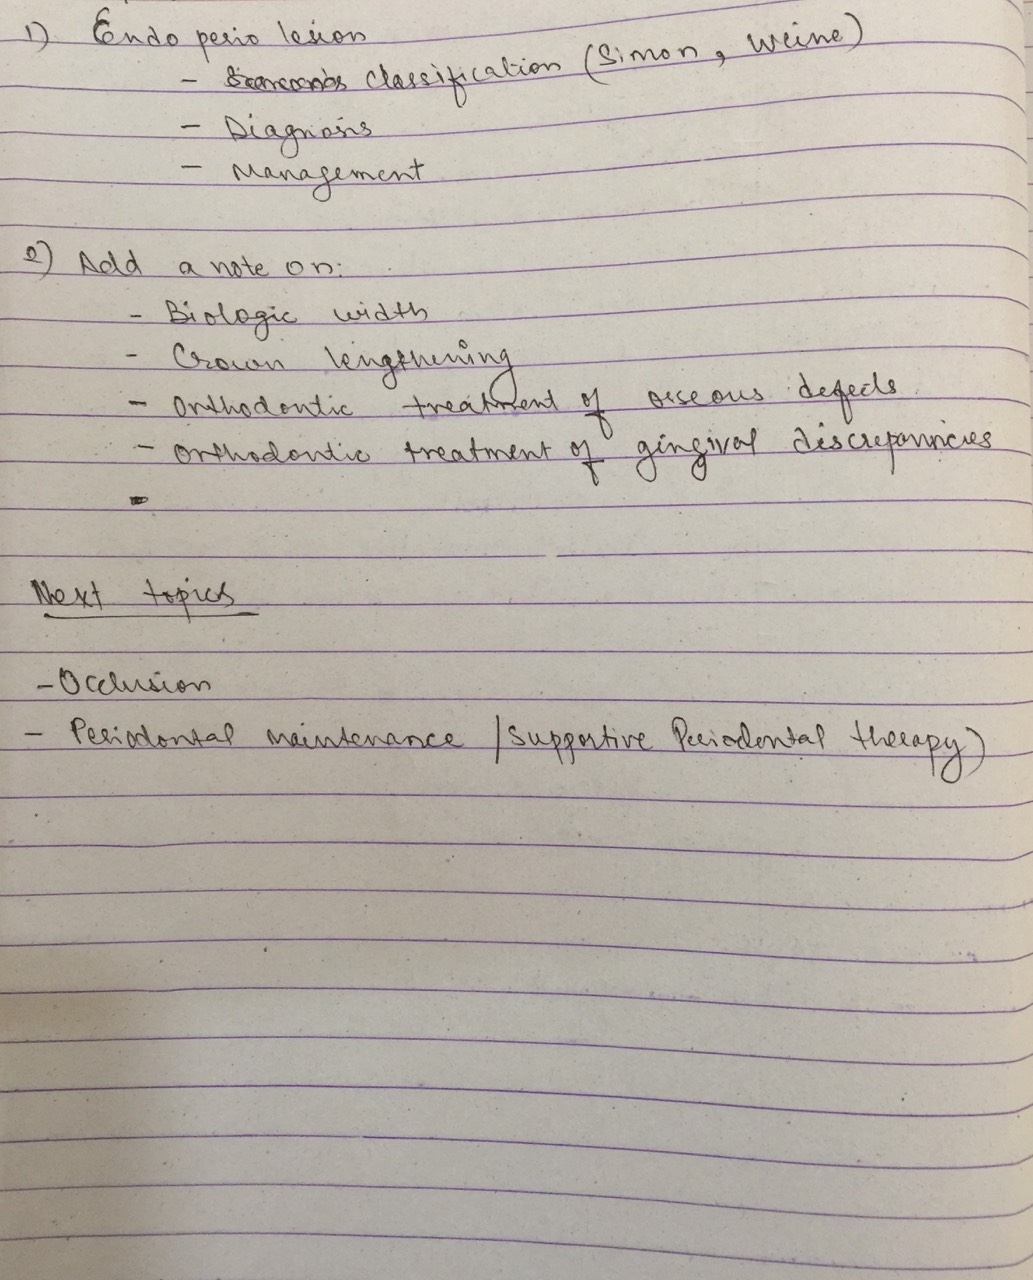 1) Endo perio lesion
- classification (Simon, Weine)
- Diagnosis
- Management
2) Add a note on:
- Biologic width
- Crown lengthening
- Orthodontic treatment of osseous defects
- Orthodontic treatment of gingival discrepancies
Next topics
- Occlusion
- Periodontal maintenance /supportive Periodontal therapy)